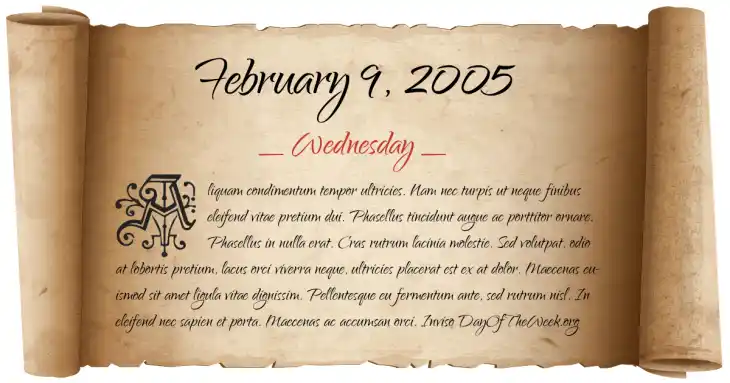 February 9, 2005
_ Wednesday _
Aliquam condimentum tempor ultricies. Nam nec turpis ut neque finibus
eleifend vitae pretium dui. Phasellus tincidunt augue ac porttitor ornare.
Phasellus in nulla erat. Cras rutrum lacinia molestie. Sed volutpat, odio
at lobortis pretium, lacus orci viverra neque, ultricies placerat est ex at dolor. Maecenas eu-
ismod sit amet ligula vitae dignissim. Pellentesque eu fermentum ante, sed rutrum nisl. In
eleifend nec sapien et porta. Maecenas ac accumsan orci. Invise DayOfTheWeek.org